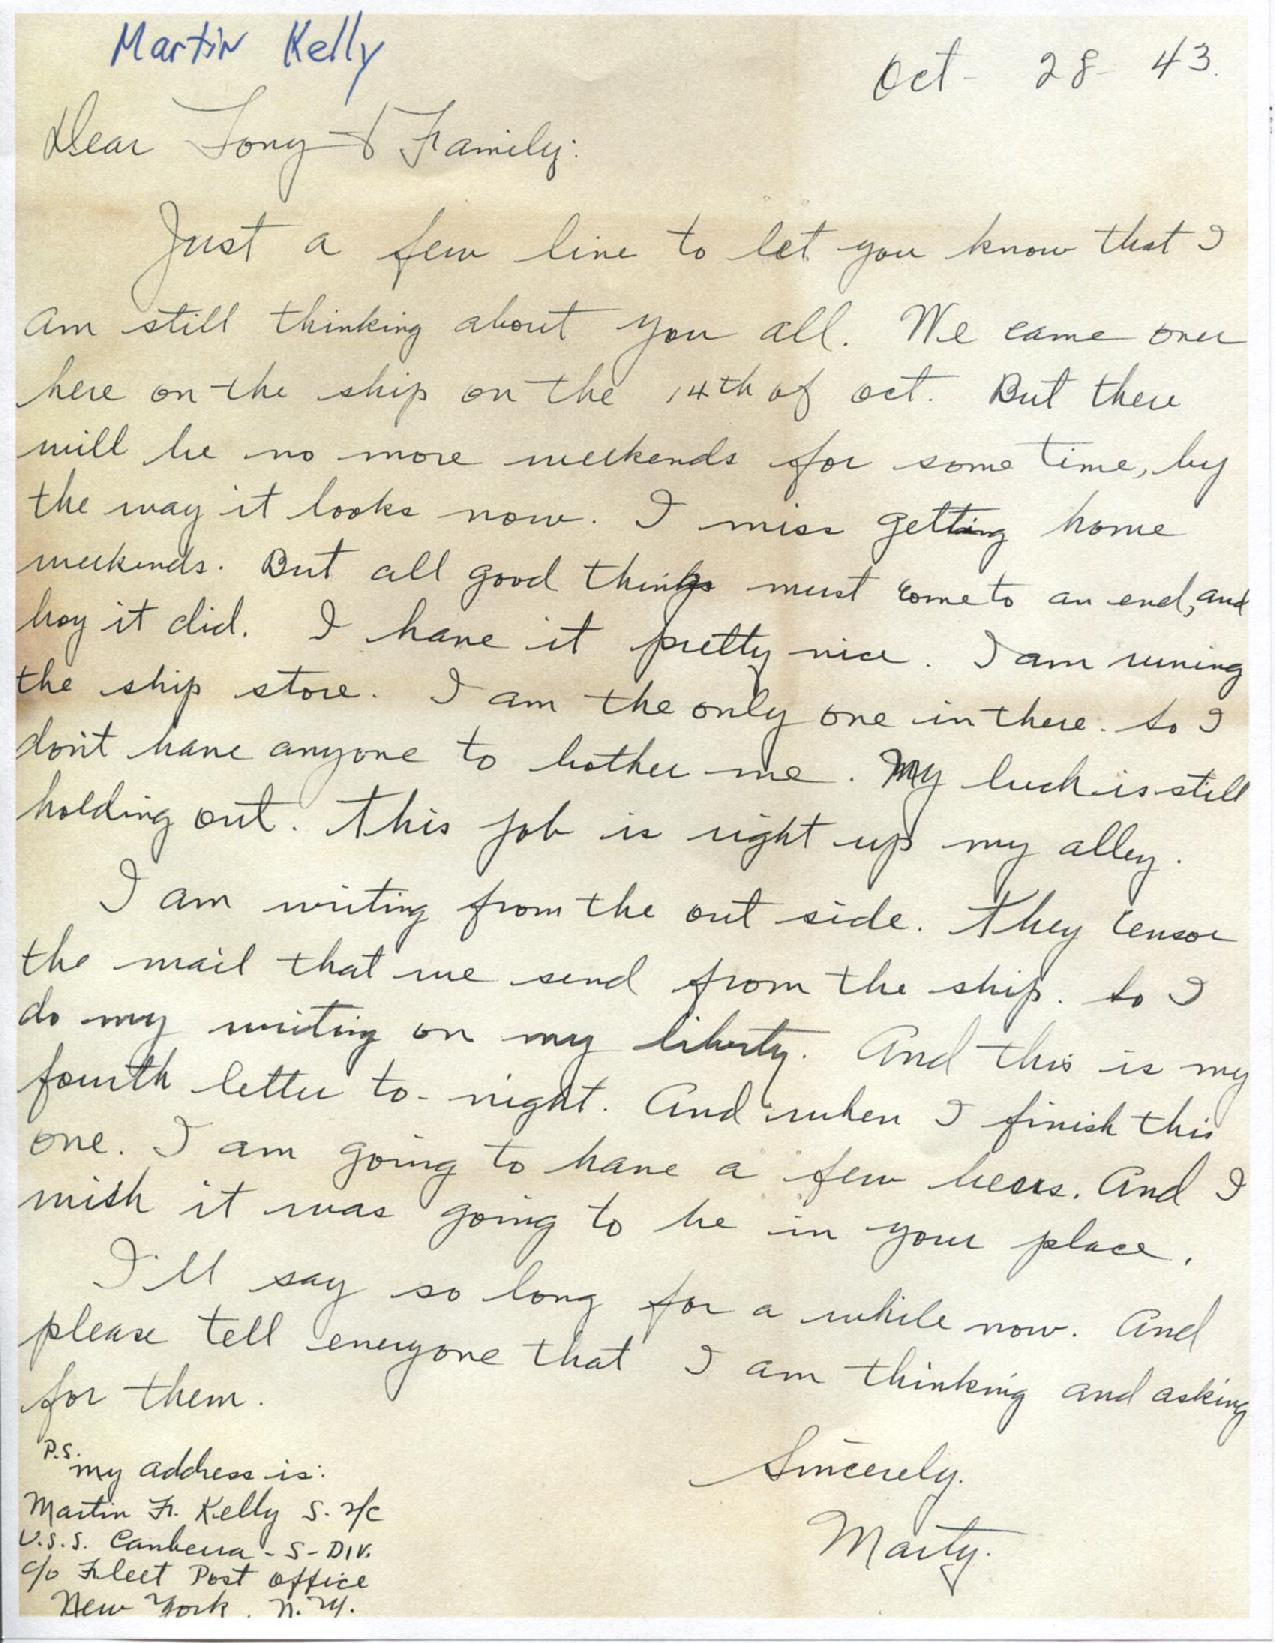 Martin Kelly
Oct - 28 - 43.
Dear Tony & Family:
Just a few line to let you know that I
am still thinking about you all. We came over
here on the ship on the 14th of oct. But there
will be no more weekends for some time, by
the way it looks now. I miss getting home
weekends. But all good things must come to an end, and
boy it did. I have it pretty nice. I am runing
the ship store. I am the only one in there. So I
don't have anyone to bother me. My luck is still
holding out. This job is right up my alley.
I am writing from the out side. They censor
the mail that we send from the ship. So I
do my writing on my liberty. And this is my
fourth letter to-night. And when I finish this
one. I am going to have a few beers. And I
wish it was going to be in your place.
I'll say so long for a while now. And
please tell everyone that I am thinking and asking
for them.
Sincerely.
Marty.
P.S. my address is:
Martin Fr. Kelly S. 2/c
U.S.S. Canberra - S - DIV.
c/o Fleet Post office
New York, N.Y.